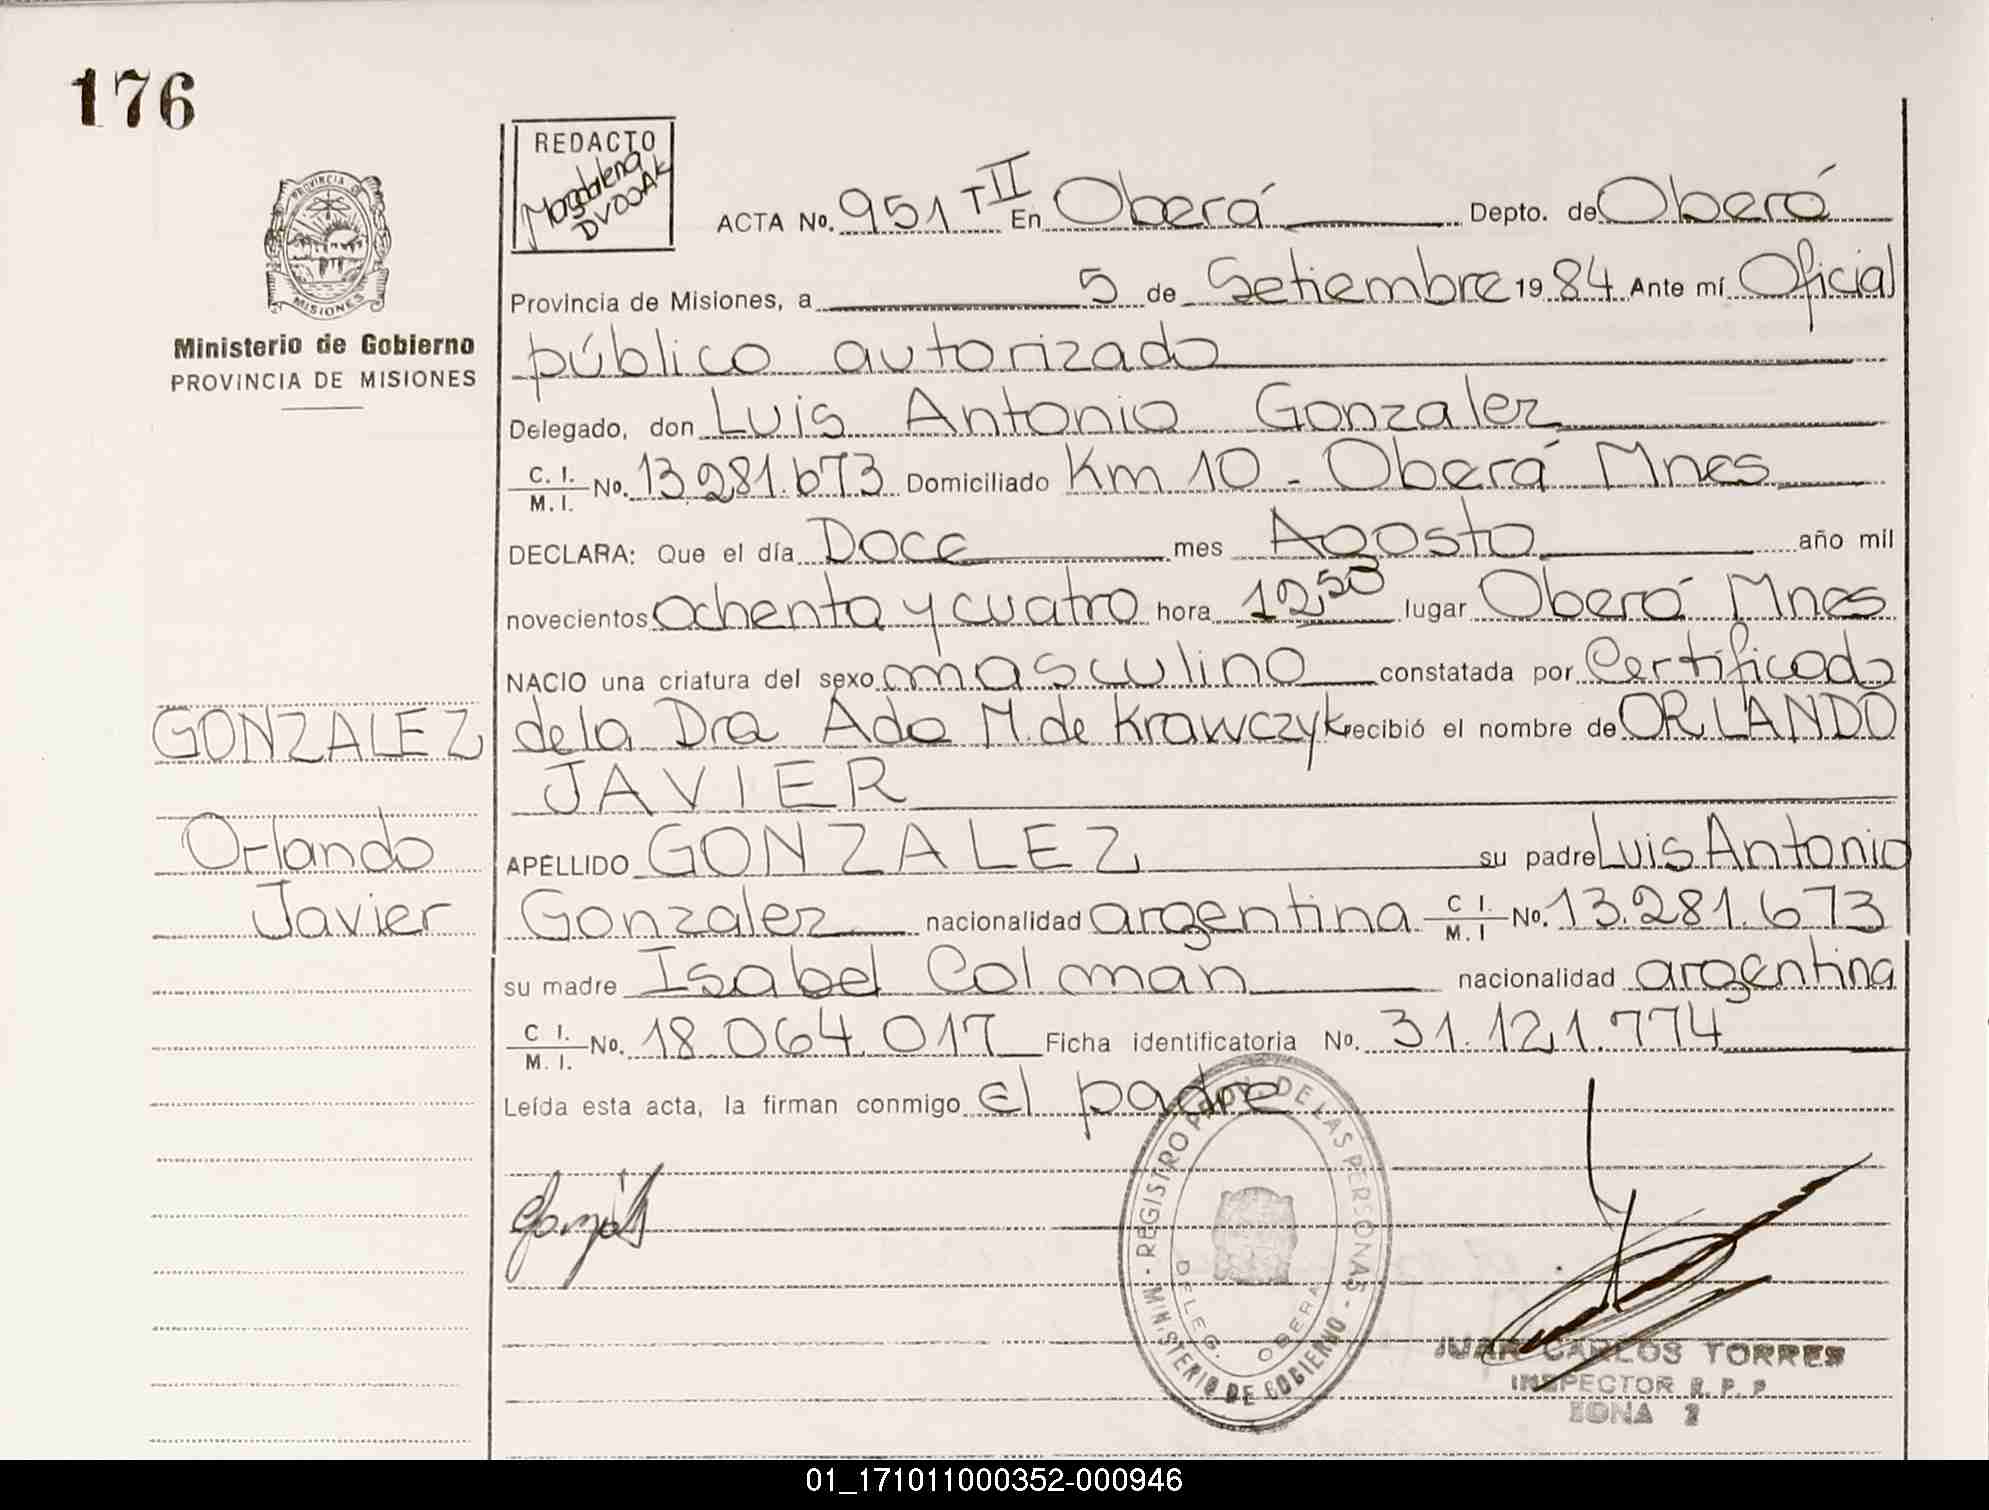 176
REDACTO
Magdalena
DVOOAK
ACTA No. 951 T II En Oberá Depto. de Oberá
Provincia de Misiones, a 5 de Setiembre 1984 Ante mí Oficial
público autorizado
Delegado, don Luis Antonio Gonzalez
C. I. M. I. No. 13.281.673 Domiciliado Km 10 - Oberá Mnes
DECLARA: Que el día Doce mes Agosto año mil
novecientos ochenta y cuatro hora 12,50 lugar Oberá Mnes
NACIO una criatura del sexo masculino constatada por Certificado
de la Dra Ada M. de Krawczyk recibió el nombre de ORLANDO
JAVIER
APELLIDO GONZALEZ su padre Luis Antonio
Gonzalez nacionalidad argentina C I. M. I No. 13.281.673
su madre Isabel Colman nacionalidad argentina
C I. M. I. No. 18.064.017 Ficha identificatoria No. 31.121.774
Leída esta acta, la firman conmigo El padre
PROVINCIA DE
MISIONES
Ministerio de Gobierno
PROVINCIA DE MISIONES
GONZALEZ
Orlando
Javier
REGISTRO PROV. DE LAS PERSONAS - MINISTERIO DE GOBIERNO -
DELEG. OBERA
JUAN CARLOS TORRES
INSPECTOR R. P. P.
ZONA 2
01_171011000352-000946